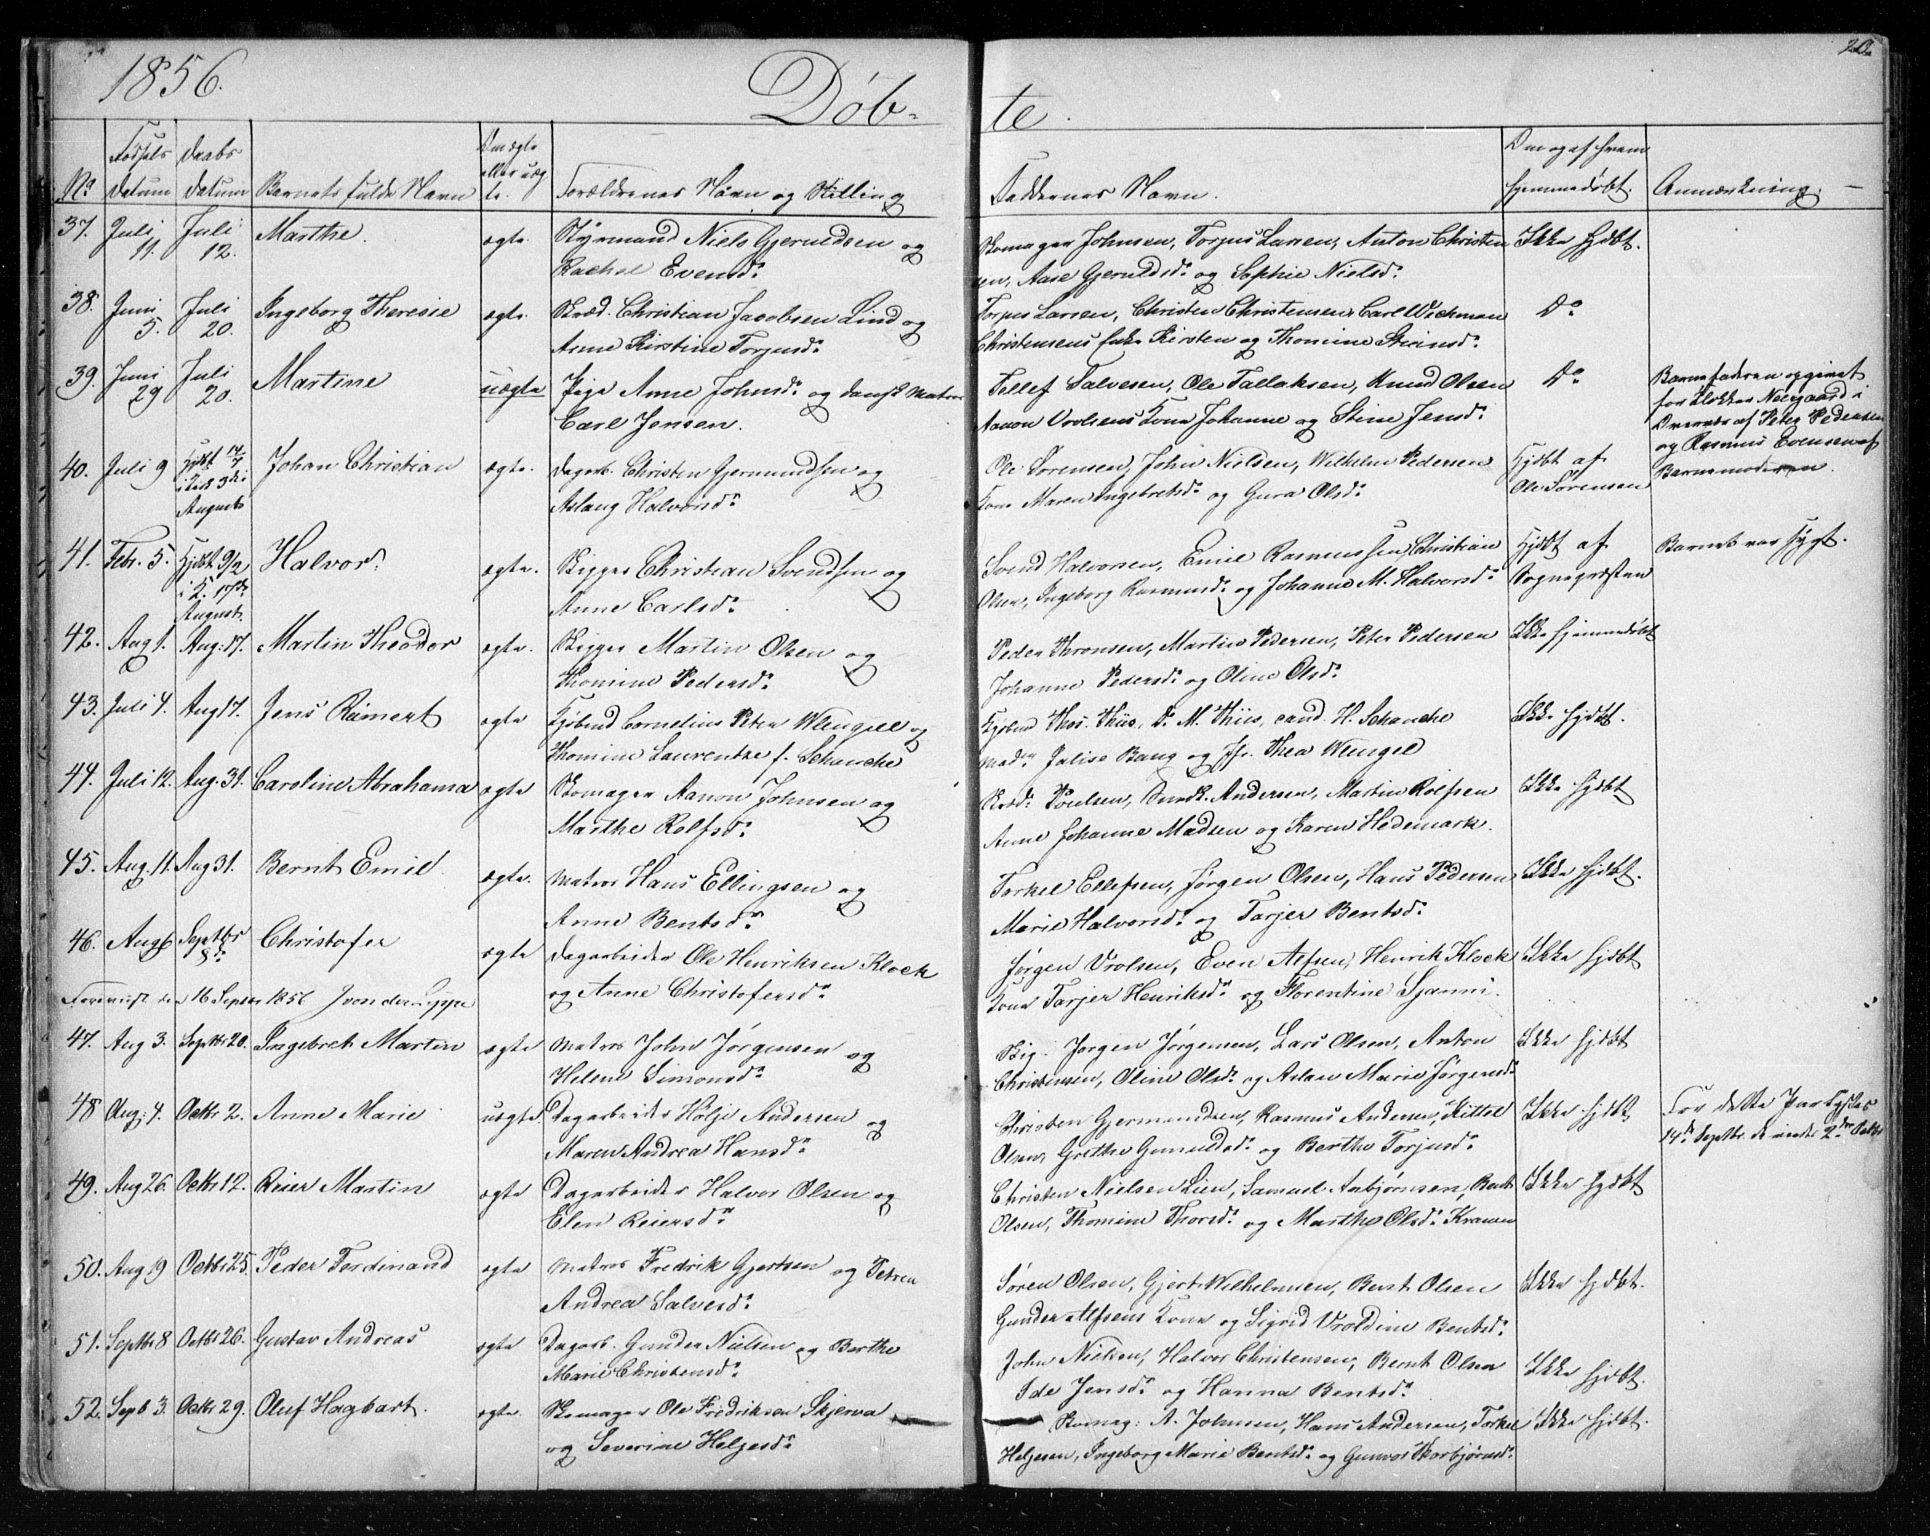 1856.
Døb-
te.
20.
No
Fødsels
Datum
Daabs
Datum
Barnets fulde Navn
Om ægte
eller uæg
te.
Forældrenes Navn og Stilling
Faddernes Navn.
Om og af hvem
hjemmedøbt.
Anmærkning.
37. Juli 11. Juli 12. Marthe. ægte. Styrmand Niels Gjeruldsen og
Rachel Evensd.
Skomager Johnsen, Torjus Larsen, Anton Christen
sen, Aase Gjerulds.d og Sophie Nielsd.
Ikke hjdbt.
38. Juni 5. Juli 20. Ingeborg Theresie ægte. Skræd. Christian Jacobsen Lind og
Anne Kirstine Torjusd.
Torjus Larsen, Christen Christensen, Carl Wichman
Christensens Enke Kirsten og Thomine
Do
39. Juni 29 Juli 20. Martine uægte Pige Anne Johnsd. og dansk Matros
Carl Jensen.
Tellef Salvesen, Ole Tallaksen, Knud Olsen
Aanon Vrolsens Kone Johanne og Stine Jensd.
Do
Barnefaderen opgivet
for Klokker Neergaard i
Overvær af Peter Pedersen
og Rasmus Evensen af
Barnemoderen.
40. Juli 9 Hjdbt 14/7 i Kirk 3die Augusts Johan Christian ægte. Dagarb. Christen Gjermundsen og
Aslaug Halvorsd.
Ole Sørensen, John Nielsen, Wilhelm Pedersens
Kone Maren Ingebretsd. og Gura Olsd.
Hjdbt af
Ole Sørensen
41. Febr. 5. Hjdbt 9/2 i K. 17de August. Halvor. ægte. Rigger Christian Svendsen og
Anne Carlsd.
Svend Halvorsen, Emil Rasmussen, Christian
Olsen, Ingeborg Rasmusd. og Johanne M. Halvorsd.
Hjdbt af
Sognepræsten
Barnet var sygt.
42. Aug 1. Aug: 17. Martin Theodor ægte. Rigger Martin Olsen og
Thomine Pedersd.
Peder Aronsen, Martin Pedersen, Peter Pedersen
Johanne Pedersd. og Oline Olsd.
Ikke hjemmedøbt
43. Juli 4. Aug 17. Jens Rømert ægte Kjøbmd Cornelius Peter Wengell og
Thomine Laurentze f. Schanche
Kjøbmd Thos. Thiis, Do M. Thiis, cand. H. Schanche
Mad. Jalise Bang og Jfr. Thea Wengel
Ikke hjdbt.
44. Juli 12. Aug. 31. Caroline Abrahama ægte Skomager Aanon Johnsen og
Marthe Rolfsd.
Skræd. Poulsen, Andersen, Martin Rolfsen
Anne Johanne Madsen og Karen Hedemark.
Ikke hjdbt
45. Aug. 11. Aug 31. Bernt Emil. ægte. Matros Hans Ellingsen og
Anne Bentsd.
Torkel Ellefsen, Jørgen Olsen, Hans Pedersen
Marie Halvorsd. og Tarjer Bentsd.
Ikke hjdbt.
46. Aug 6 Septbr 8de Christofer ægte Dagarbeider Ole Henriksen Klock
og Anne Christofersd.
Jørgen Vrolsen, Even Alfsen, Henrik Klock
Kone Tarjer Henriksd. og Florentine Sjanni.
Ikke hjdbt
Foreviist den 16 Septbr 1856 J von der Lippe
47. Aug 3. Septbr 20. Ingebret Martin ægte Matros John Jørgensen og
Helene Simonsd.
Rig. Jørgen Jørgensen, Lars Olsen, Anton
Christensen, Oline Olsd. og Aslau Marie Jørgensd.
Ikke hjdbt
48 Aug: 4. Octbr 2. Anne Marie uægte. Dagarbeider Holje Andersen og
Maren Andrea Hansd.
Christen Gjermundsen, Rasmus Andersen, Kittel
Olsen, Grethe Gunnulsd. og Berthe Torjusd.
Ikke hjdbt
For dette Par lystes
14de Septbr. de viedes 2den Octbr
49. Aug 26. Octbr 12. Reier Martin ægte Dagarbeider Halvor Olsen og
Elen Reiersd.
Christen Nielsen Lien, Samuel Anbjørnsen, Bent
Olsen, Thomine Thorsd. og Marthe Olsd. Kramer
Ikke hjdbt
50. Aug 19 Octbr 25. Peder Ferdinand ægte Matros Fredrik Gjertsen og Petrea
Andrea Salvesd.
Søren Olsen, Gjert Wilhelmsen, Bent Olsen
Gunder Alfsens Kone og Sigrid Vroldine Bentsd.
Ikke hjdbt.
51. Septbr 8 Octbr 26. Gustav Andreas ægte Dagarb. Gunder Nielsen og Berthe
Marie Christensd.
John Nielsen, Halvor Christensen, Bernt Olsen
Ide Jensd. og Hanna Bentsd.
Ikke hjdbt.
52. Septb 3. Octbr 29. Oluf Hagbart. ægte. Skomager Ole Fredriksen Skjerva
og Severine Heljesd.
Skomag: A. Johnsen, Hans Andersen, Torkel
Heljesen, Ingeborg Marie Bentsd. og Gunvor Thorbjørnsd.
Ikke hjdbt.